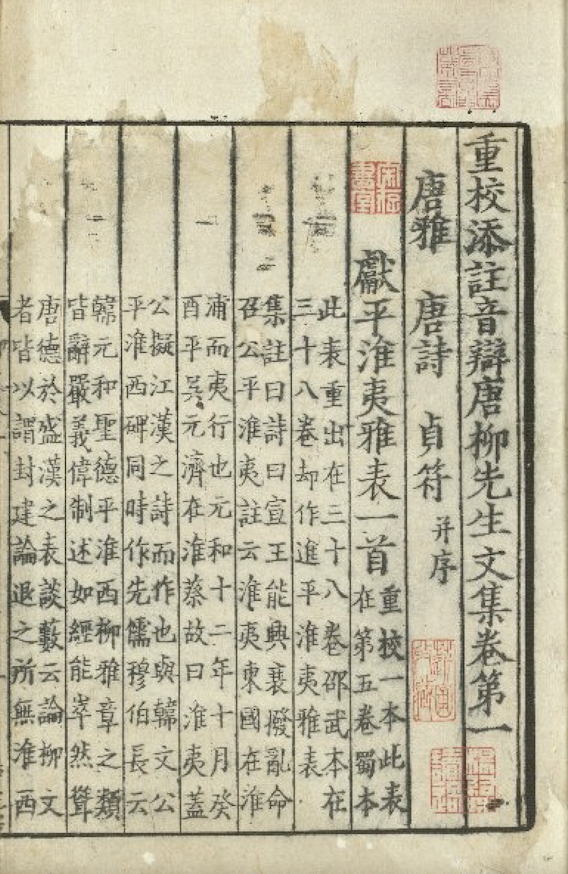 重校添註音辯唐柳先生文集卷第一
唐雅 唐詩 貞符 并序
獻平淮夷雅表一首
重校一本此表
在第五卷蜀本
此表重出在三十八卷邵武本在
三十八卷却作進平淮夷雅表
集註曰詩曰宣王能興衰撥亂命
召公平淮夷註云淮夷東國在淮
浦而夷行也元和十二年十月癸
酉平吳元濟在淮蔡故曰淮夷蓋
公擬江漢之詩而作也與韓文公
平淮西碑同時作先儒穆伯長云
韓元和聖德平淮西柳雅章之類
皆辭嚴義偉制述如經能崒然聳
唐德於盛漢之表談藪云論柳文
者皆以謂封建論退之所無淮西